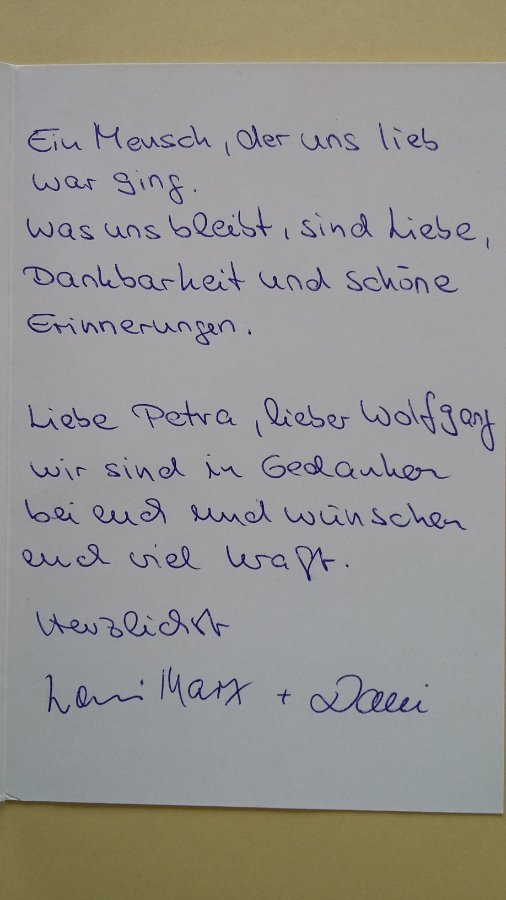 Ein Mensch, der uns lieb
war ging.
Was uns bleibt, sind Liebe,
Dankbarkeit und schöne
Erinnerungen.
Liebe Petra, lieber Wolfgang
wir sind in Gedanken
bei euch und wünschen
euch viel Kraft.
Herzlichst
Marx + Dani